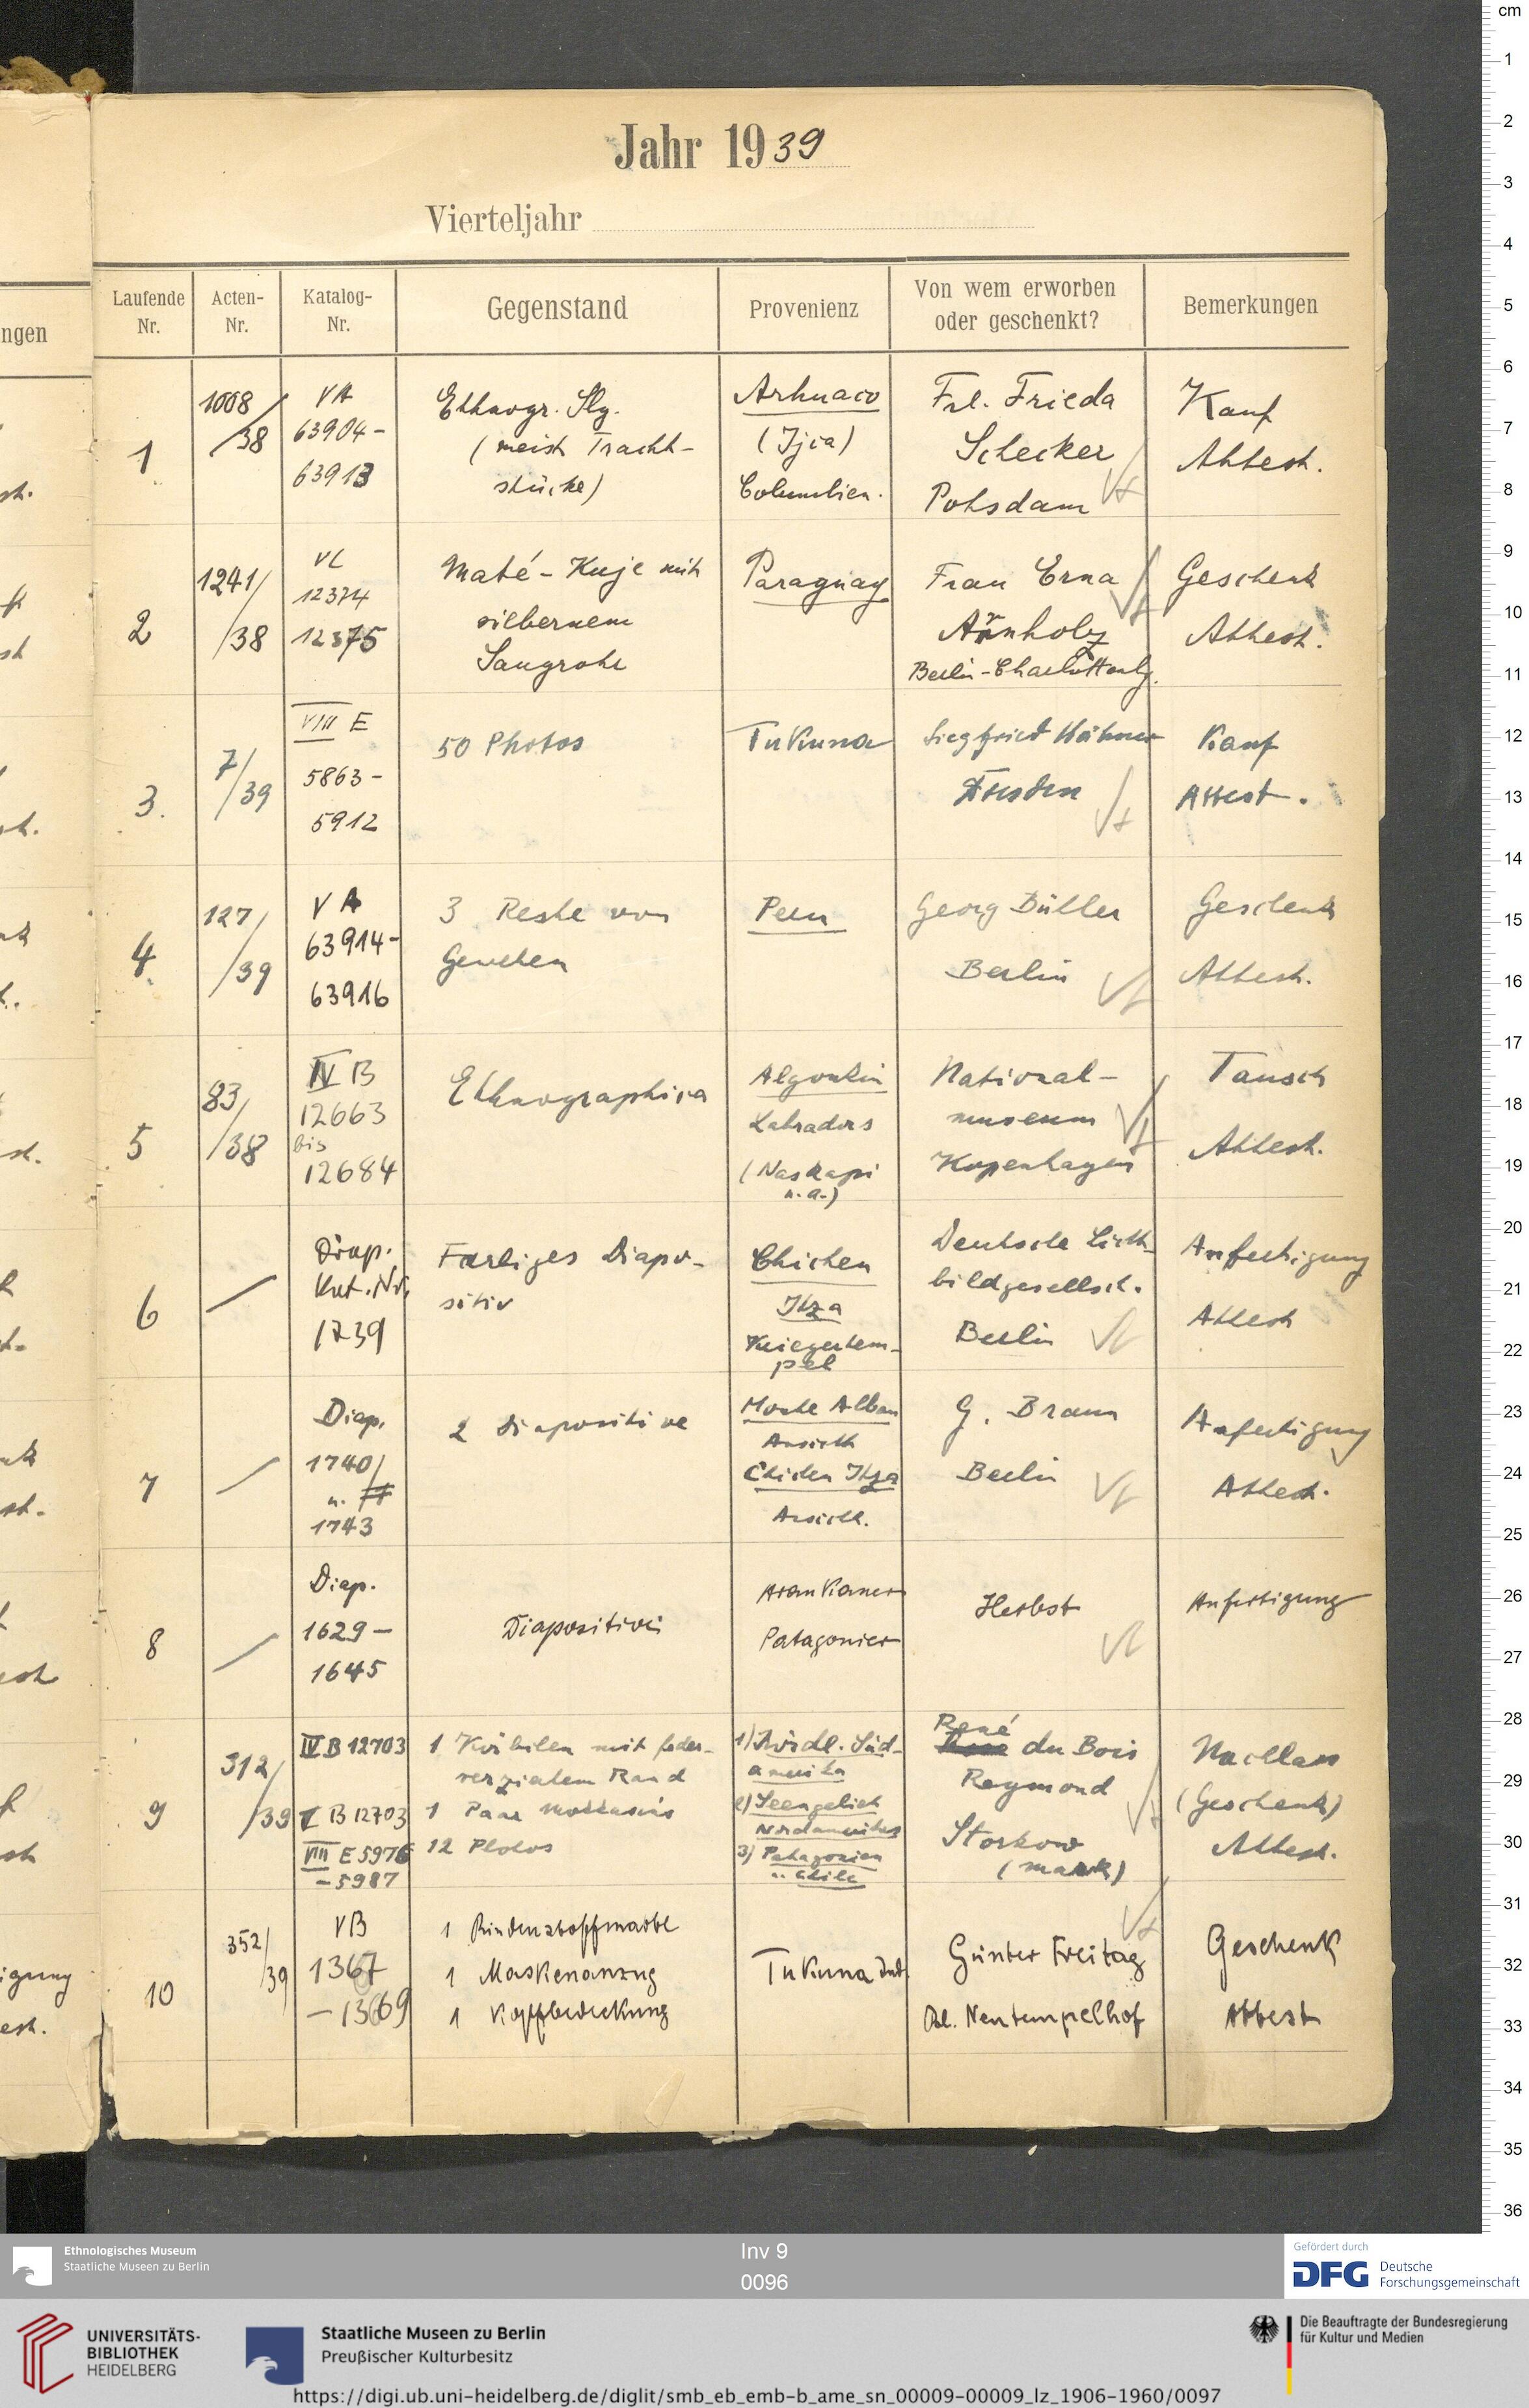 Jahr 1939
Vierteljahr
Laufende Nr.
Acten-Nr.
Katalog-Nr.
Gegenstand
Provenienz
Von wem erworben oder geschenkt?
Bemerkungen
1
1008/38
VA
63904-
63913
Ethnogr. Slg.
(meist Tracht-
stücke)
Arhuaco
(Ijca)
Columbien.
Frl. Frieda
Schecker
Potsdam
Kauf
Attest.
2
1241/38
VC
12374
12375
Maté-Kuje mit
silbernem
Saugrohr
Paraguay
Frau Erna
Arnholz
Berlin-Charlottenbg.
Geschenk
Attest.
3.
7/39
VIII E
5863-
5912
50 Photos
Tukuna
Siegfried
Dresden
Kauf
Attest.
4.
127/39
VA
63914-
63916
3 Reste von
Geweben
Peru
Georg Büller
Berlin
Geschenk
Attest.
5
83/38
IV B
12663
bis
12684
Ethnographica
Algonkin
Labradors
(Naskapi
u.a.)
National-
museum
Kopenhagen
Tausch
Attest.
6
Diap.
Kat. Nr.
1739
Farbiges Diapo-
sitiv
Chichen
Itza
Kriegertem-
pel
Deutsche Licht-
bildgesellsch.
Berlin
Anfertigung
Attest
7
Diap.
1740/
u.
1743
2 Diapositive
Monte Alban
Ansicht
Chichen Itza
Ansicht.
G. Braun
Berlin
Anfertigung
Attest.
8
Diap.
1629-
1645
Diapositive
Araukaner
Patagonier
Herbst
Anfertigung
9
312/39
IV B 12703
V B 12703
VIII E 5976
-5987
1 Körbchen mit feder-
verziertem Rand
1 Paar Mokkasins
12 Photos
1) Nördl. Süd-
amerika
2) Seengebiet
Nordamerikas
3) Patagonien
u. Chile
René
du Bois
Raymond
Storkow
(Mark)
Nachlass
(Geschenk)
Attest.
10
352/39
VB
1367
-1369
1 Rindenstoffmaske
1 Maskenanzug
1 Kopfbedeckung
Tukuna Ind.
Günter Freitag
Bl. Neutempelhof
Geschenk
Attest
ngen
cm
1
2
3
4
5
6
7
8
9
10
11
12
13
14
15
16
17
18
19
20
21
22
23
24
25
26
27
28
29
30
31
32
33
34
35
36
Ethnologisches Museum
Staatliche Museen zu Berlin
Inv 9
0096
Gefördert durch
DFG Deutsche
Forschungsgemeinschaft
UNIVERSITÄTS-
BIBLIOTHEK
HEIDELBERG
Staatliche Museen zu Berlin
Preußischer Kulturbesitz
Die Beauftragte der Bundesregierung
für Kultur und Medien
https://digi.ub.uni-heidelberg.de/diglit/smb_eb_emb-b_ame_sn_00009-00009_lz_1906-1960/0097